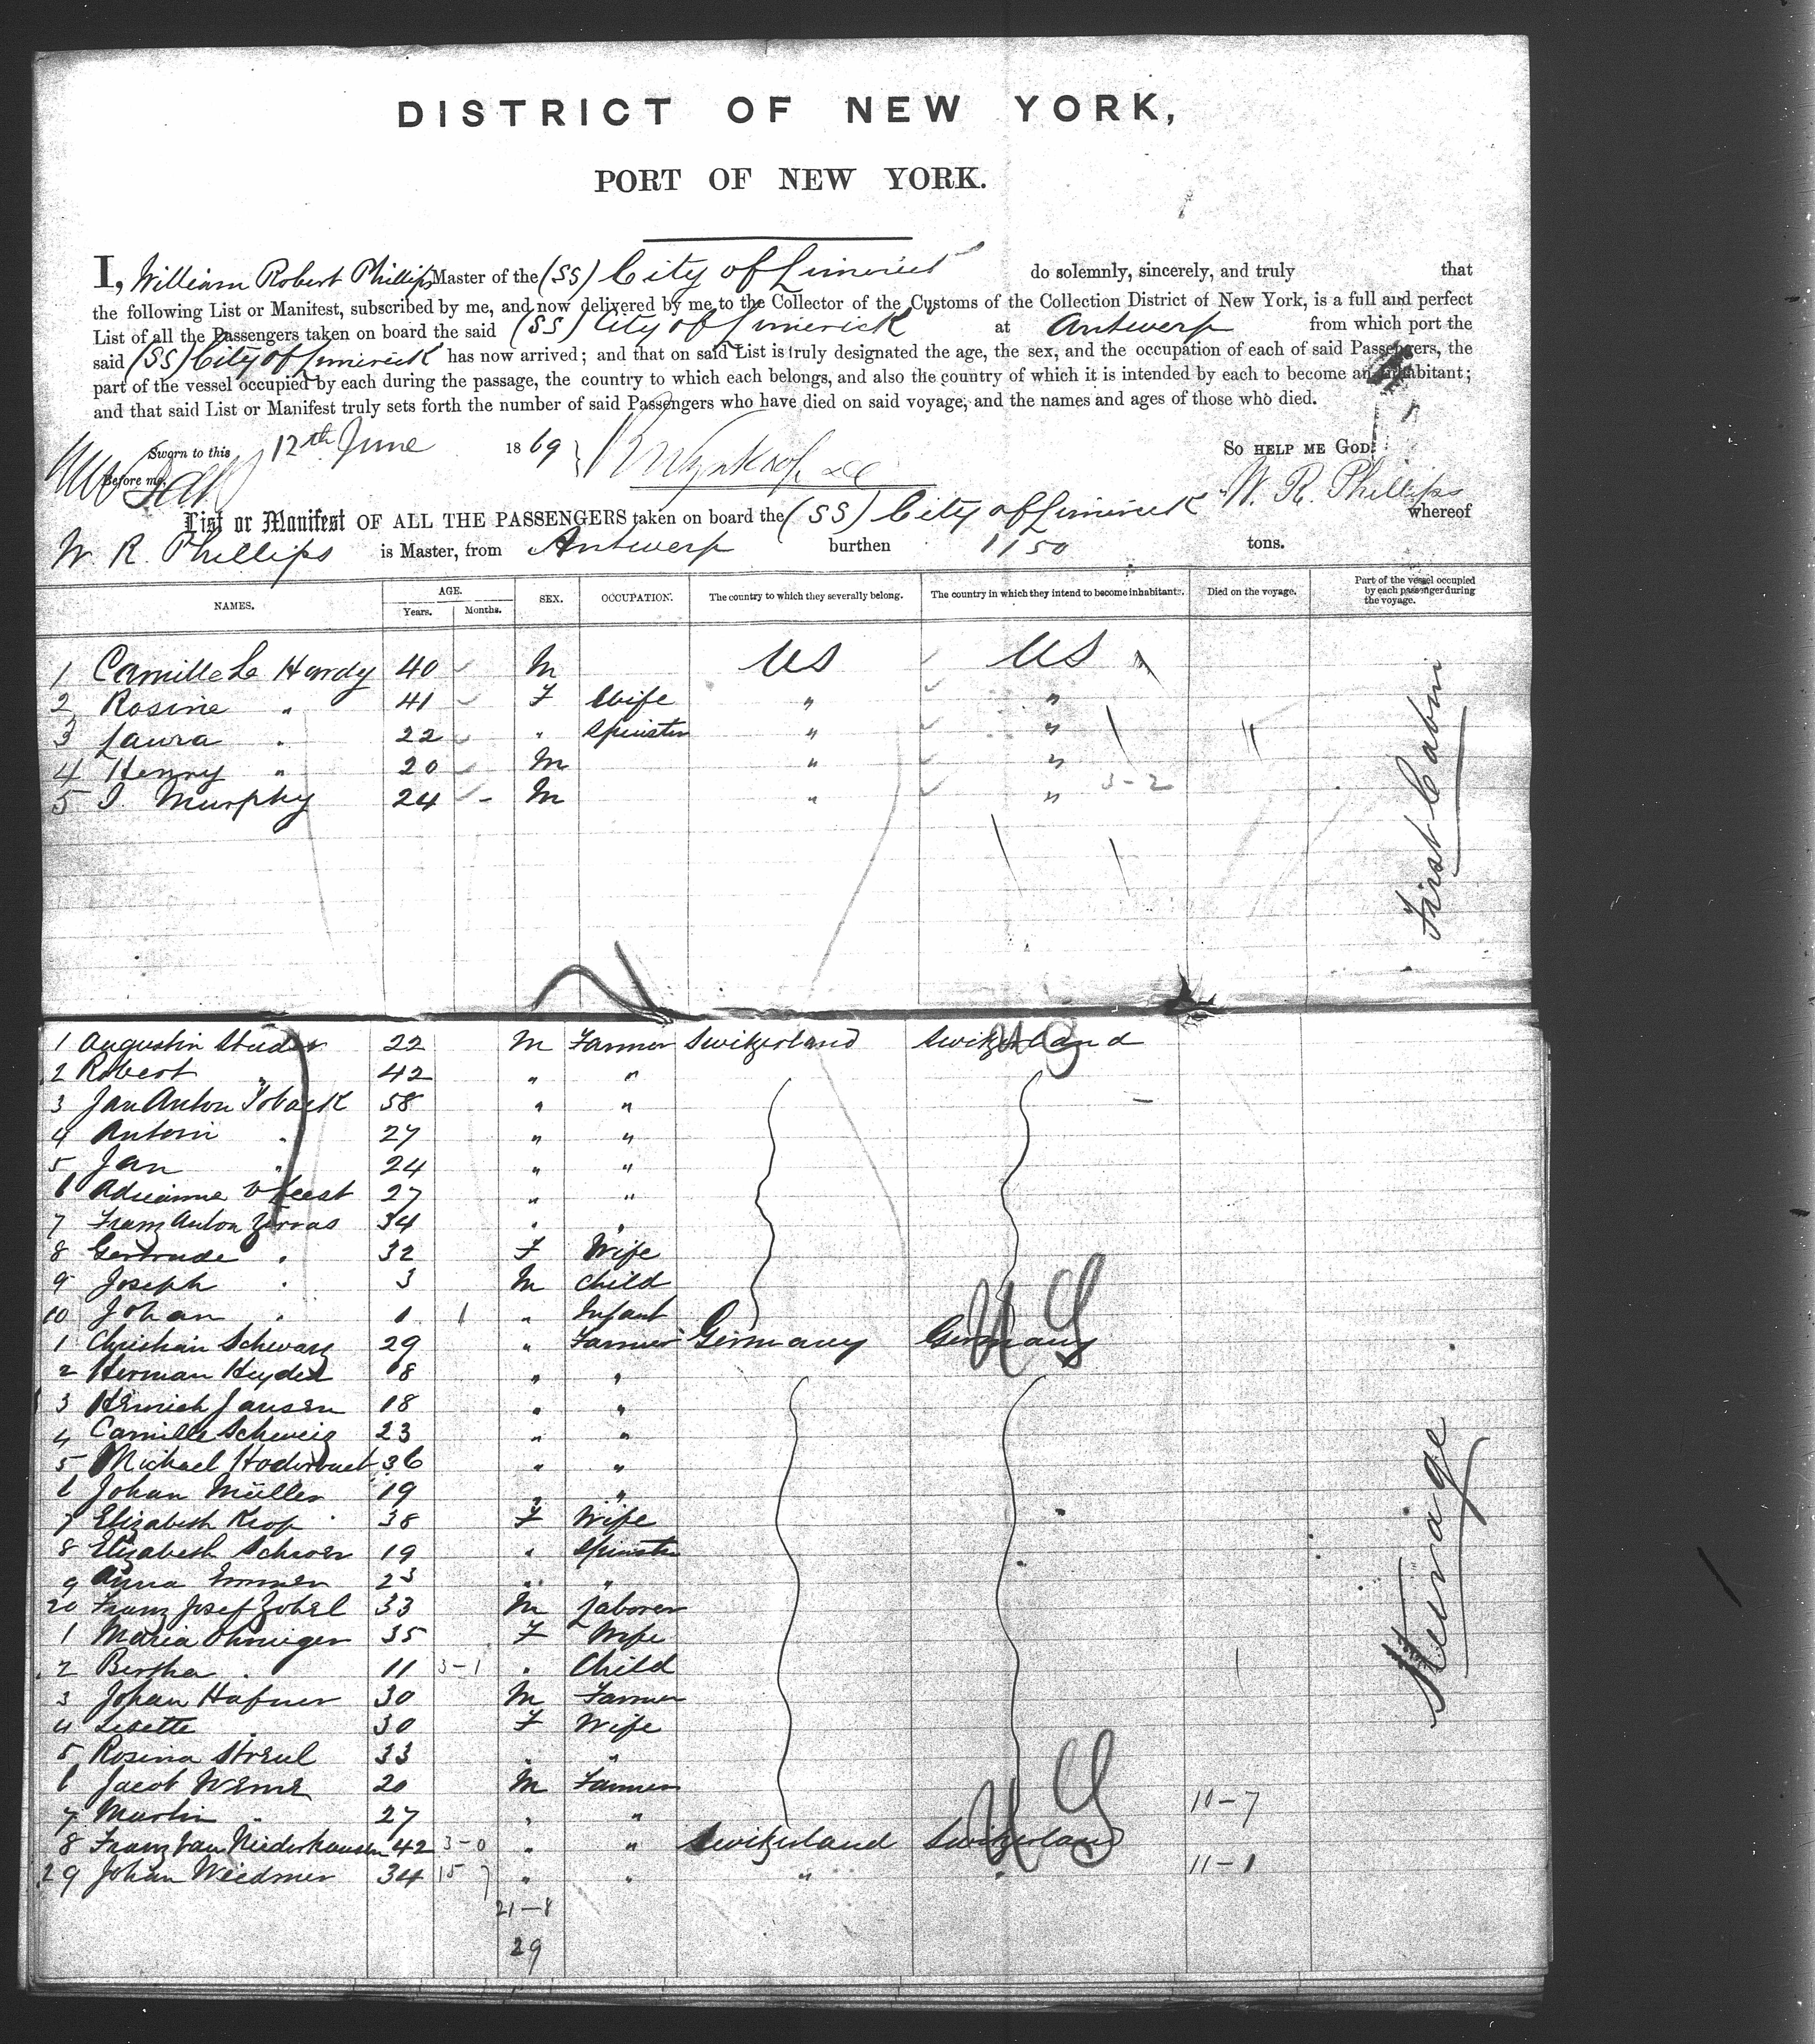 DISTRICT OF NEW YORK,
PORT OF NEW YORK.
I, William Robert Phillips Master of the (SS) City of Limerick do solemnly, sincerely, and truly that
the following List or Manifest, subscribed by me, and now delivered by me to the Collector of the Customs of the Collection District of New York, is a full and perfect
List of all the Passengers taken on board the said (SS) City of Limerick at Antwerp from which port the
said (SS) City of Limerick has now arrived; and that on said List is truly designated the age, the sex, and the occupation of each of said Passengers, the
part of the vessel occupied by each during the passage, the country to which each belongs, and also the country of which it is intended by each to become an inhabitant;
and that said List or Manifest truly sets forth the number of said Passengers who have died on said voyage, and the names and ages of those who died.
Sworn to this 12th June 1869 } So HELP ME GOD:
Before me, W. R. Phillips
List or Manifest OF ALL THE PASSENGERS taken on board the (SS) City of Limerick whereof
W. R. Phillips is Master, from Antwerp burthen 1150 tons.
NAMES. AGE. Years. Months. SEX. OCCUPATION. The country to which they severally belong. The country in which they intend to become inhabitants. Died on the voyage. Part of the vessel occupied by each passenger during the voyage.
1 Camille Le Hardy 40 M US US
2 Rosine " 41 F Wife " "
3 Laura " 22 " Spinster " "
4 Henry " 20 M " "
5 J. Murphy 24 - M " " 3-2
First Cabin
1 Augustin Studer 22 M Farmer Switzerland Switzerland US
2 Robert " 42 " "
3 Jan Anton 58 " "
4 Antoni " 27 " "
5 Jan " 24 " "
6 Adrianne 27 " "
7 Franz Anton 34 " "
8 Gertrude " 32 F Wife
9 Joseph " 3 M Child
10 Johan " 1 " Infant
1 Christian Schwarz 29 " Farmer Germany Germany US
2 Herman 18 " "
3 Heinrich Jansen 18 " "
4 Camille Schweig 23 " "
5 Michael 36 " "
6 Johan Müller 19 " "
7 Elizabeth Krop 38 F Wife
8 Elizabeth Schroer 19 " Spinster
9 Anna Emmen 23 " "
20 Franz Josef Zobel 33 M Laborer
1 Maria 35 F Wife
2 Bertha " 11 3-1 " Child
3 Johan Hafner 30 M Farmer
4 Lisette " 30 F Wife
5 Rosina Streul 33 " "
6 Jacob 20 M Farmer
7 Martin " 27 " " 10-7
8 Franz van Niederhausen 42 3-0 " " Switzerland Switzerland US
29 Johan Wiedmer 34 15 7 " " " " 11-1
21-8
29
Steerage